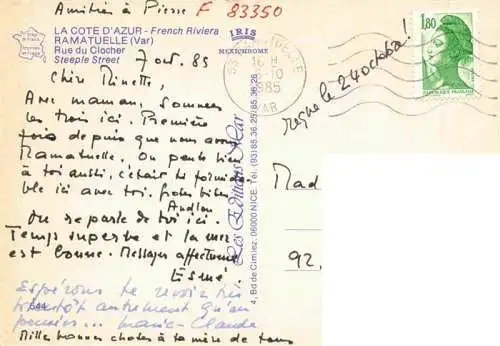 Amitiés à Pierre F 83350
LA COTE D'AZUR - French Riviera
RAMATUELLE (Var)
Rue du Clocher
Steeple Street
IRIS
MEXICHROME
7 oct. 85
Chère Minette,
Avec maman, sommes
les trois ici. Première
fois depuis que nous avons
Ramatuelle. On pense bien
à toi aussi, c'était formida-
ble ici avec toi.
On reparle de toi ici.
Temps superbe et la mer
est bonne. Messages affectueux
Esmé.
Espérons te revoir très
bientôt autrement qu'en
pensées... Marie-Claude
Mille bonnes choses à ta mère de tous
Les Editions Mar
4, Bd de Cimiez, 06000 NICE. Tel. (93) 85.36.25/85.36.26
16 H
-10
1985
VAR
reçue le 24 octobre!
1,80
Mad
92.